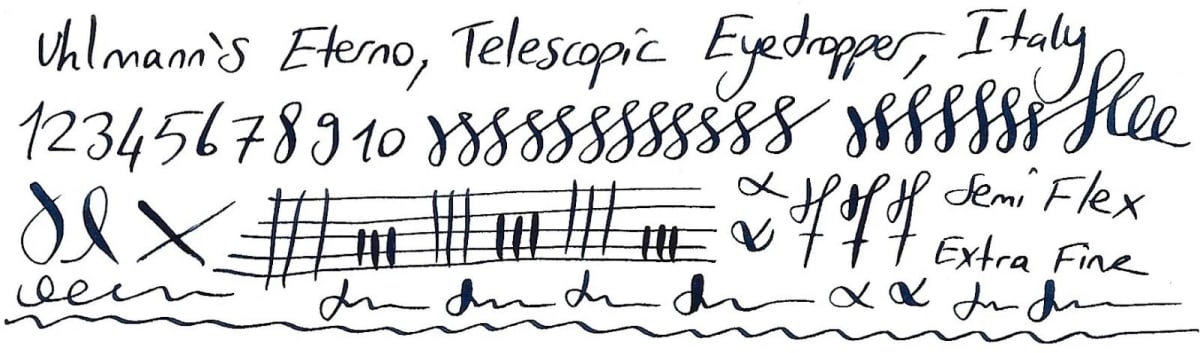 Uhlmann's Eterno, Telescopic Eyedropper, Italy
1 2 3 4 5 6 7 8 9 10
Semi Flex
Extra Fine